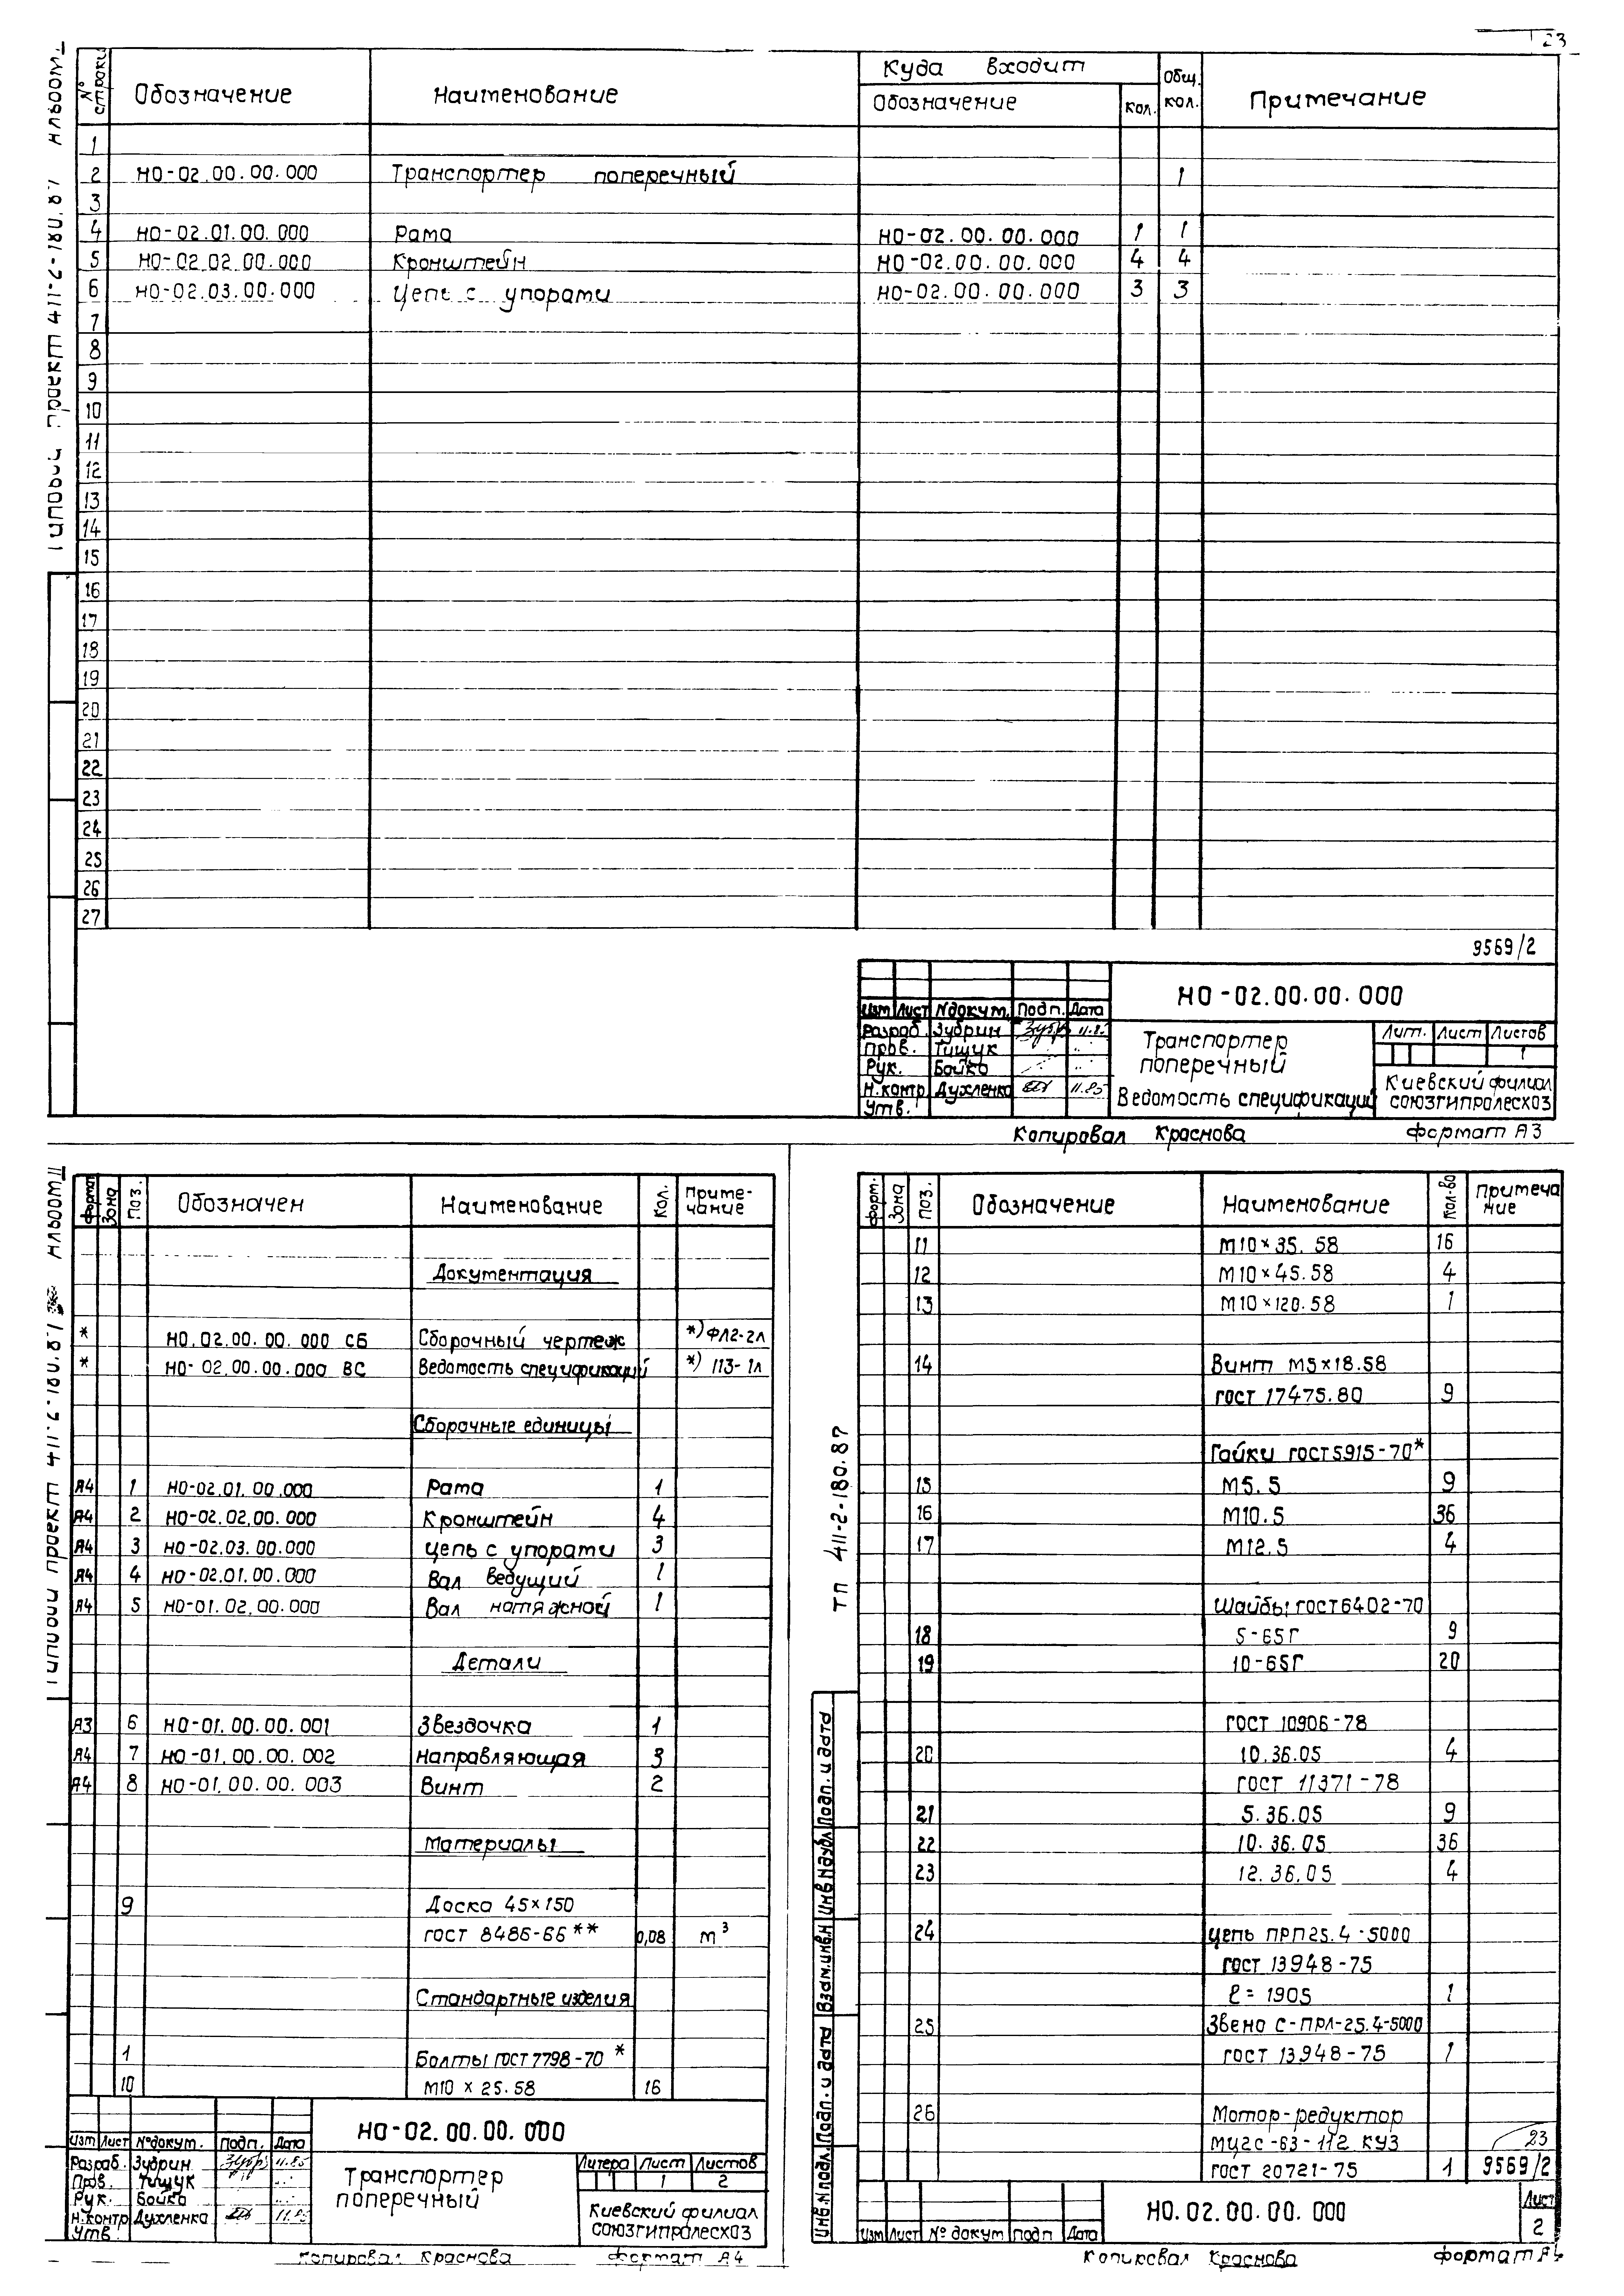 23
Альбом
Типовой проект 411-2-180.8
№ строки Обозначение Наименование Куда входит Общ. кол. Примечание
Обозначение кол.
1
2 НО-02.00.00.000 Транспортер поперечный 1
3
4 НО-02.01.00.000 Рама НО-02.00.00.000 1 1
5 НО-02.02.00.000 Кронштейн НО-02.00.00.000 4 4
6 НО-02.03.00.000 Цепь с упорами НО-02.00.00.000 3 3
7
8
9
10
11
12
13
14
15
16
17
18
19
20
21
22
23
24
25
26
27
9569/2
НО-02.00.00.000
Изм Лист №докум. Подп. Дата
Разраб. Зубрин 11.85
Пров. Тищук
Рук. Бойко
Н.контр Духленко 11.85
Утв.
Транспортер
поперечный
Ведомость спецификаций
Лит. Лист Листов
1
Киевский филиал
союзгипролесхоз
Копировал Краснова Формат А3
Альбом III
Типовой проект 411-2-180.8
Формат Зона Поз. Обозначен Наименование Кол. Приме-чание
Документация
* НО.02.00.00.000 СБ Сборочный чертеж *) ФЛ2-2л
* НО-02.00.00.000 ВС Ведомость спецификаций *) 113-1л
Сборочные единицы
А4 1 НО-02.01.00.000 Рама 1
А4 2 НО-02.02.00.000 Кронштейн 4
А4 3 НО-02.03.00.000 Цепь с упорами 3
А4 4 НО-02.01.00.000 Вал ведущий 1
А4 5 НО-01.02.00.000 Вал натяжной 1
Детали
А3 6 НО-01.00.00.001 Звездочка 1
А4 7 НО-01.00.00.002 Направляющая 3
А4 8 НО-01.00.00.003 Винт 2
Материалы
9 Доска 45×150
гост 8486-66** 0,08 м³
Стандартные изделия
1 Болты гост 7798-70*
10 М10 × 25.58 16
НО-02.00.00.000
Изм Лист №докум. Подп. Дата
Разраб. Зубрин 11.85
Пров. Тищук
Рук. Бойко
Н.контр Духленко 11.85
Утв.
Транспортер
поперечный
Литера Лист Листов
1 2
Киевский филиал
союзгипролесхоз
Копировал Краснова Формат А4
ТП 411-2-180.87
Форм. Зона Поз. Обозначение Наименование Кол-во Примеча ние
11 М10×35.58 16
12 М10×45.58 4
13 М10×120.58 1
14 Винт М5×18.58
гост 17475.80 9
Гайки гост 5915-70*
15 М5.5 9
16 М10.5 36
17 М12.5 4
Шайбы гост 6402-70
18 5-65Г 9
19 10-65Г 20
гост 10906-78
20 10.36.05 4
гост 11371-78
21 5.36.05 9
22 10.36.05 36
23 12.36.05 4
24 Цепь ПРП25.4-5000
гост 13948-75
ℓ=1905 1
25 Звено С-ПРЛ-25.4-5000
гост 13948-75 1
26 Мотор-редуктор
МЦ2С-63-112 КУЗ
гост 20721-75 1
23
9569/2
Инв.№подл. Подп. и дата Взам.инв.№ Инв№дубл Подп. и дата
Изм Лист № докум подп Дата
НО.02.00.00.000
Лист
2
Копировал Краснова Формат А4